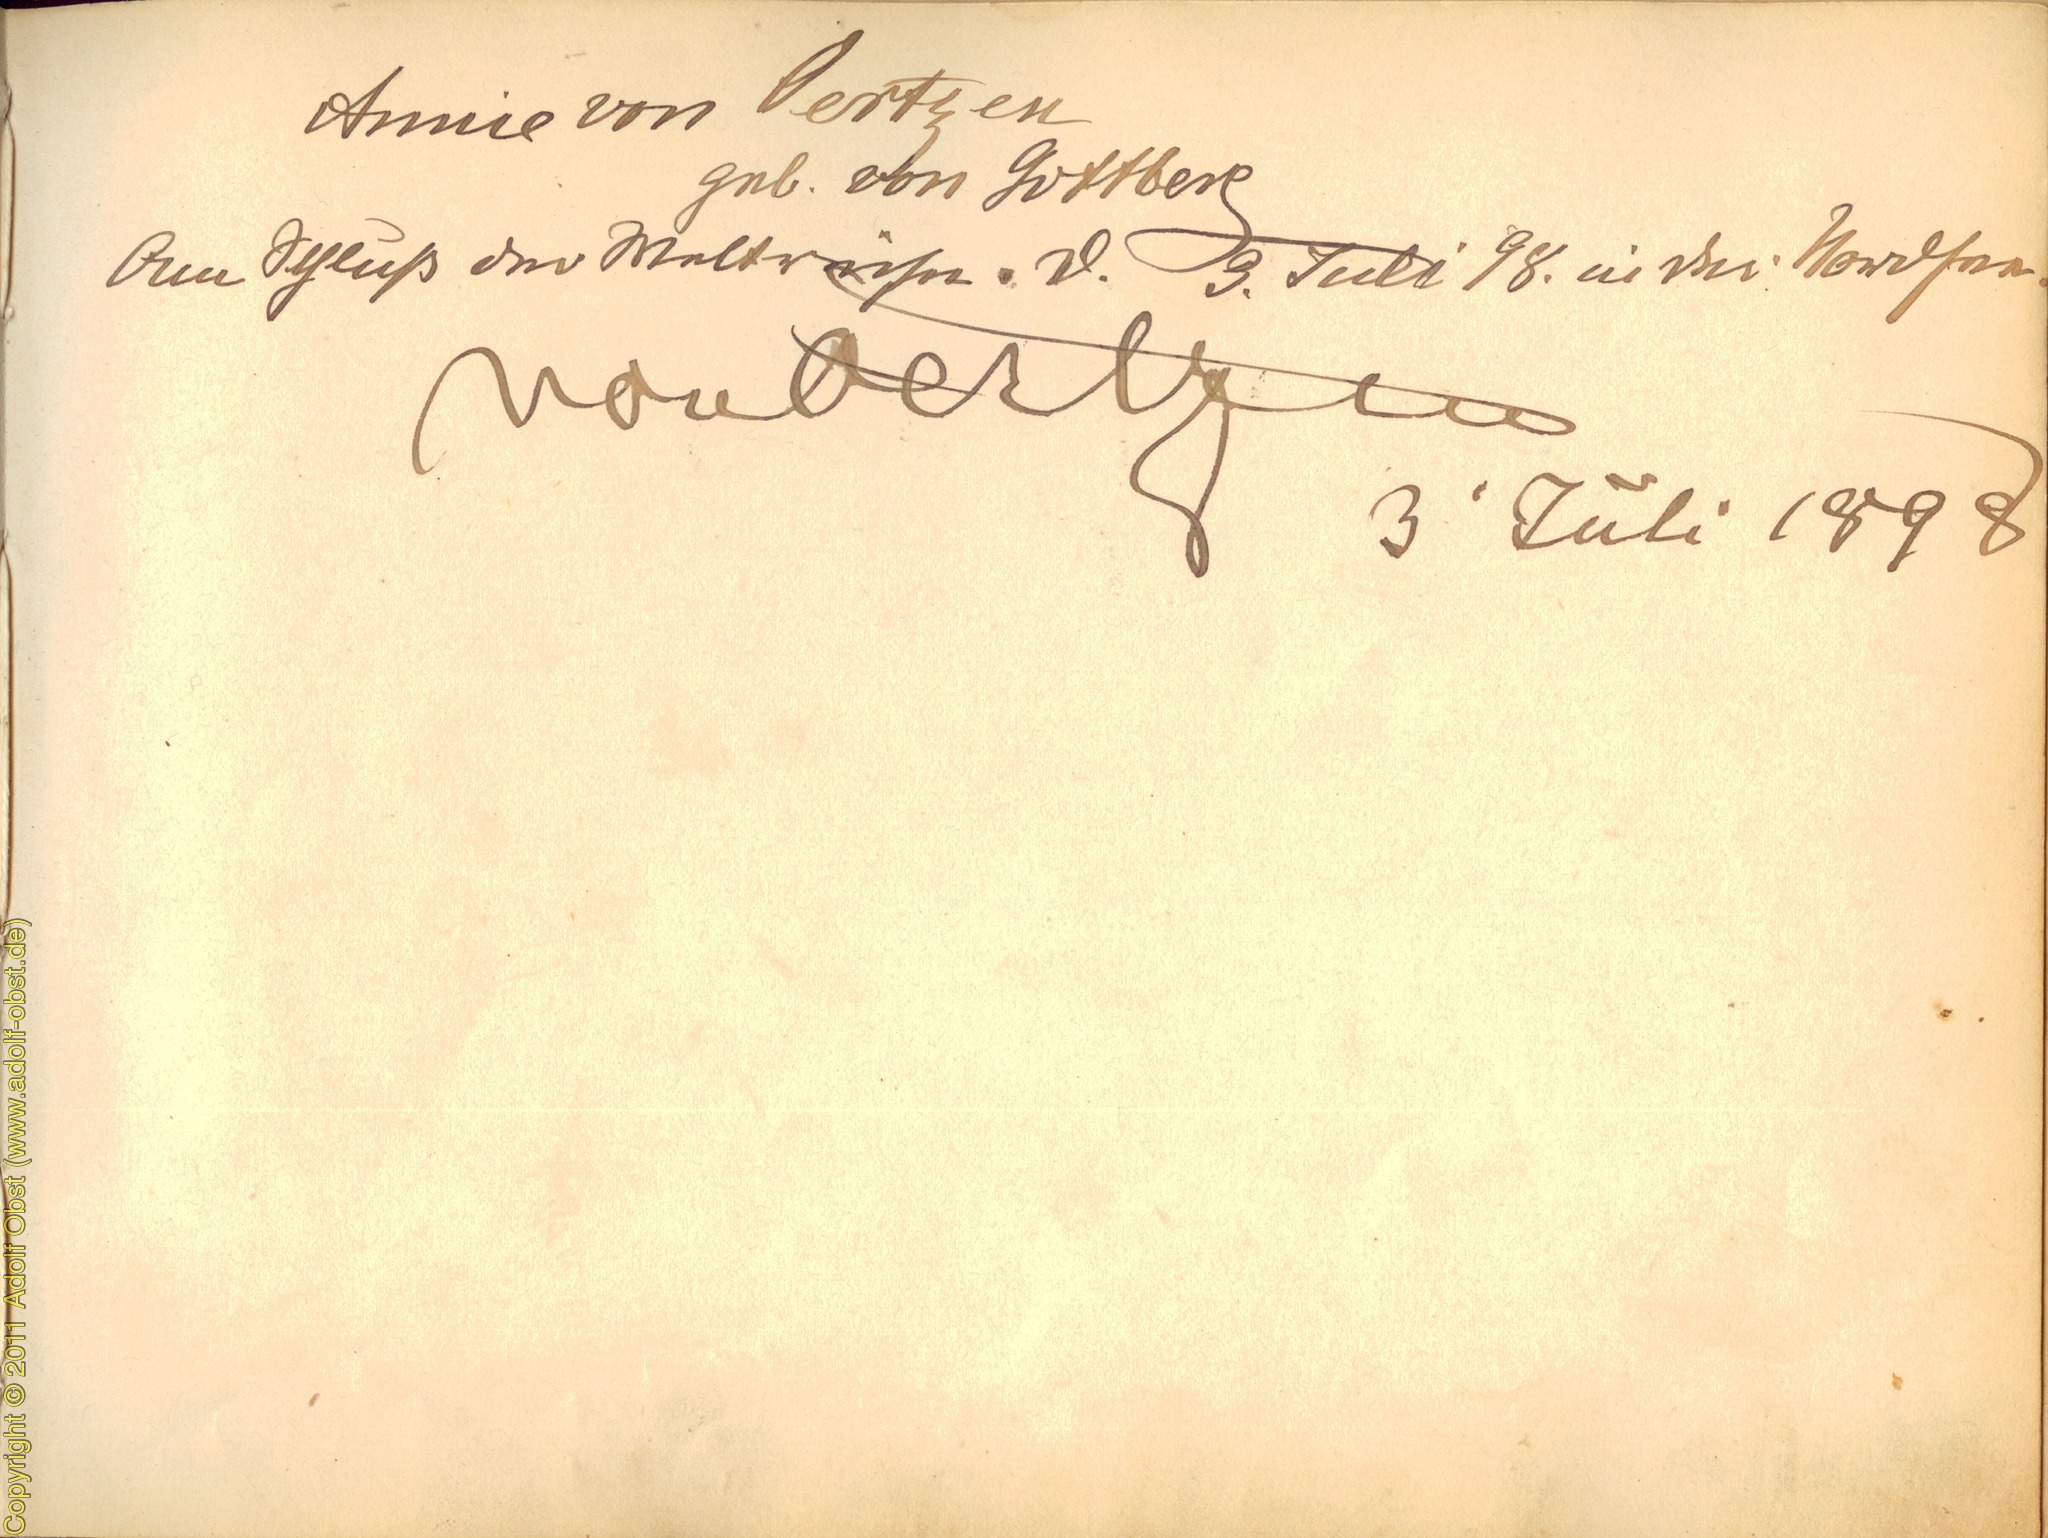 Annie von Oertzen
geb. von Gottberg
Am Schluß der Weltreise. d. 3. Juli 98. in der Nordsee.
von Oertzen
3. Juli 1898
Copyright © 2011 Adolf Obst (www.adolf-obst.de)